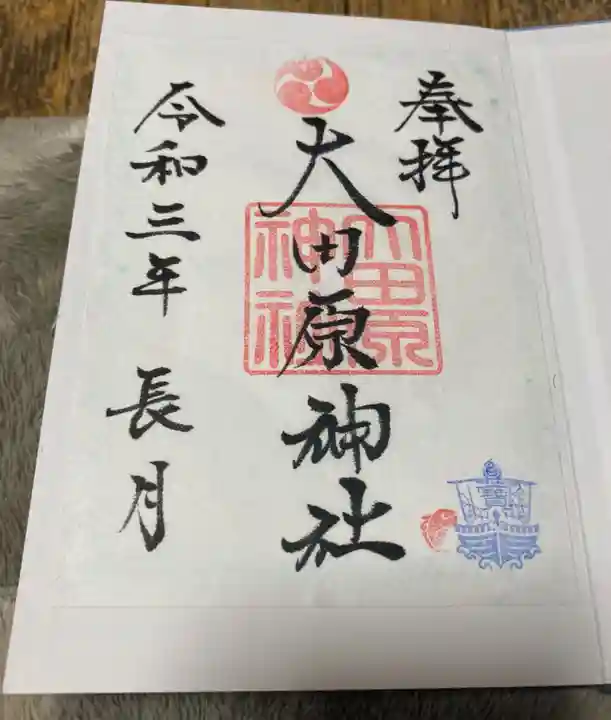 奉拝
大田原神社
大田原神社
令和三年 長月
寳